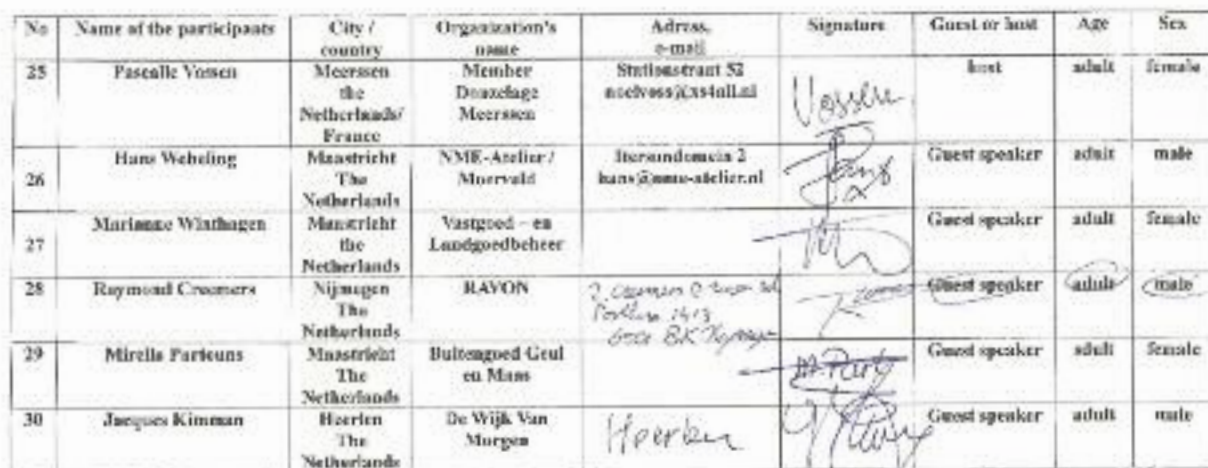 No Name of the participants City / country Organization's name Adress, e-mail Signature Guest or host Age Sex
25 Pascalle Vossen Meerssen the Netherlands/ France Member Douzelage Meerssen Stationstraat 52 host adult female
Vossen
26 Hans Webeling Maastricht The Netherlands NME-Atelier / Moerveld hans@nme-atelier.nl Guest speaker adult male
27 Marianne Winthagen Maastricht the Netherlands Vastgoed – en Landgoedbeheer Guest speaker adult female
28 Raymond Creemers Nijmegen The Netherlands RAVON Guest speaker adult male
29 Mirella Partouns Maastricht The Netherlands Buitengoed Geul en Maas Guest speaker adult female
30 Jacques Kimman Heerlen The Netherlands De Wijk Van Morgen Heerlen Guest speaker adult male